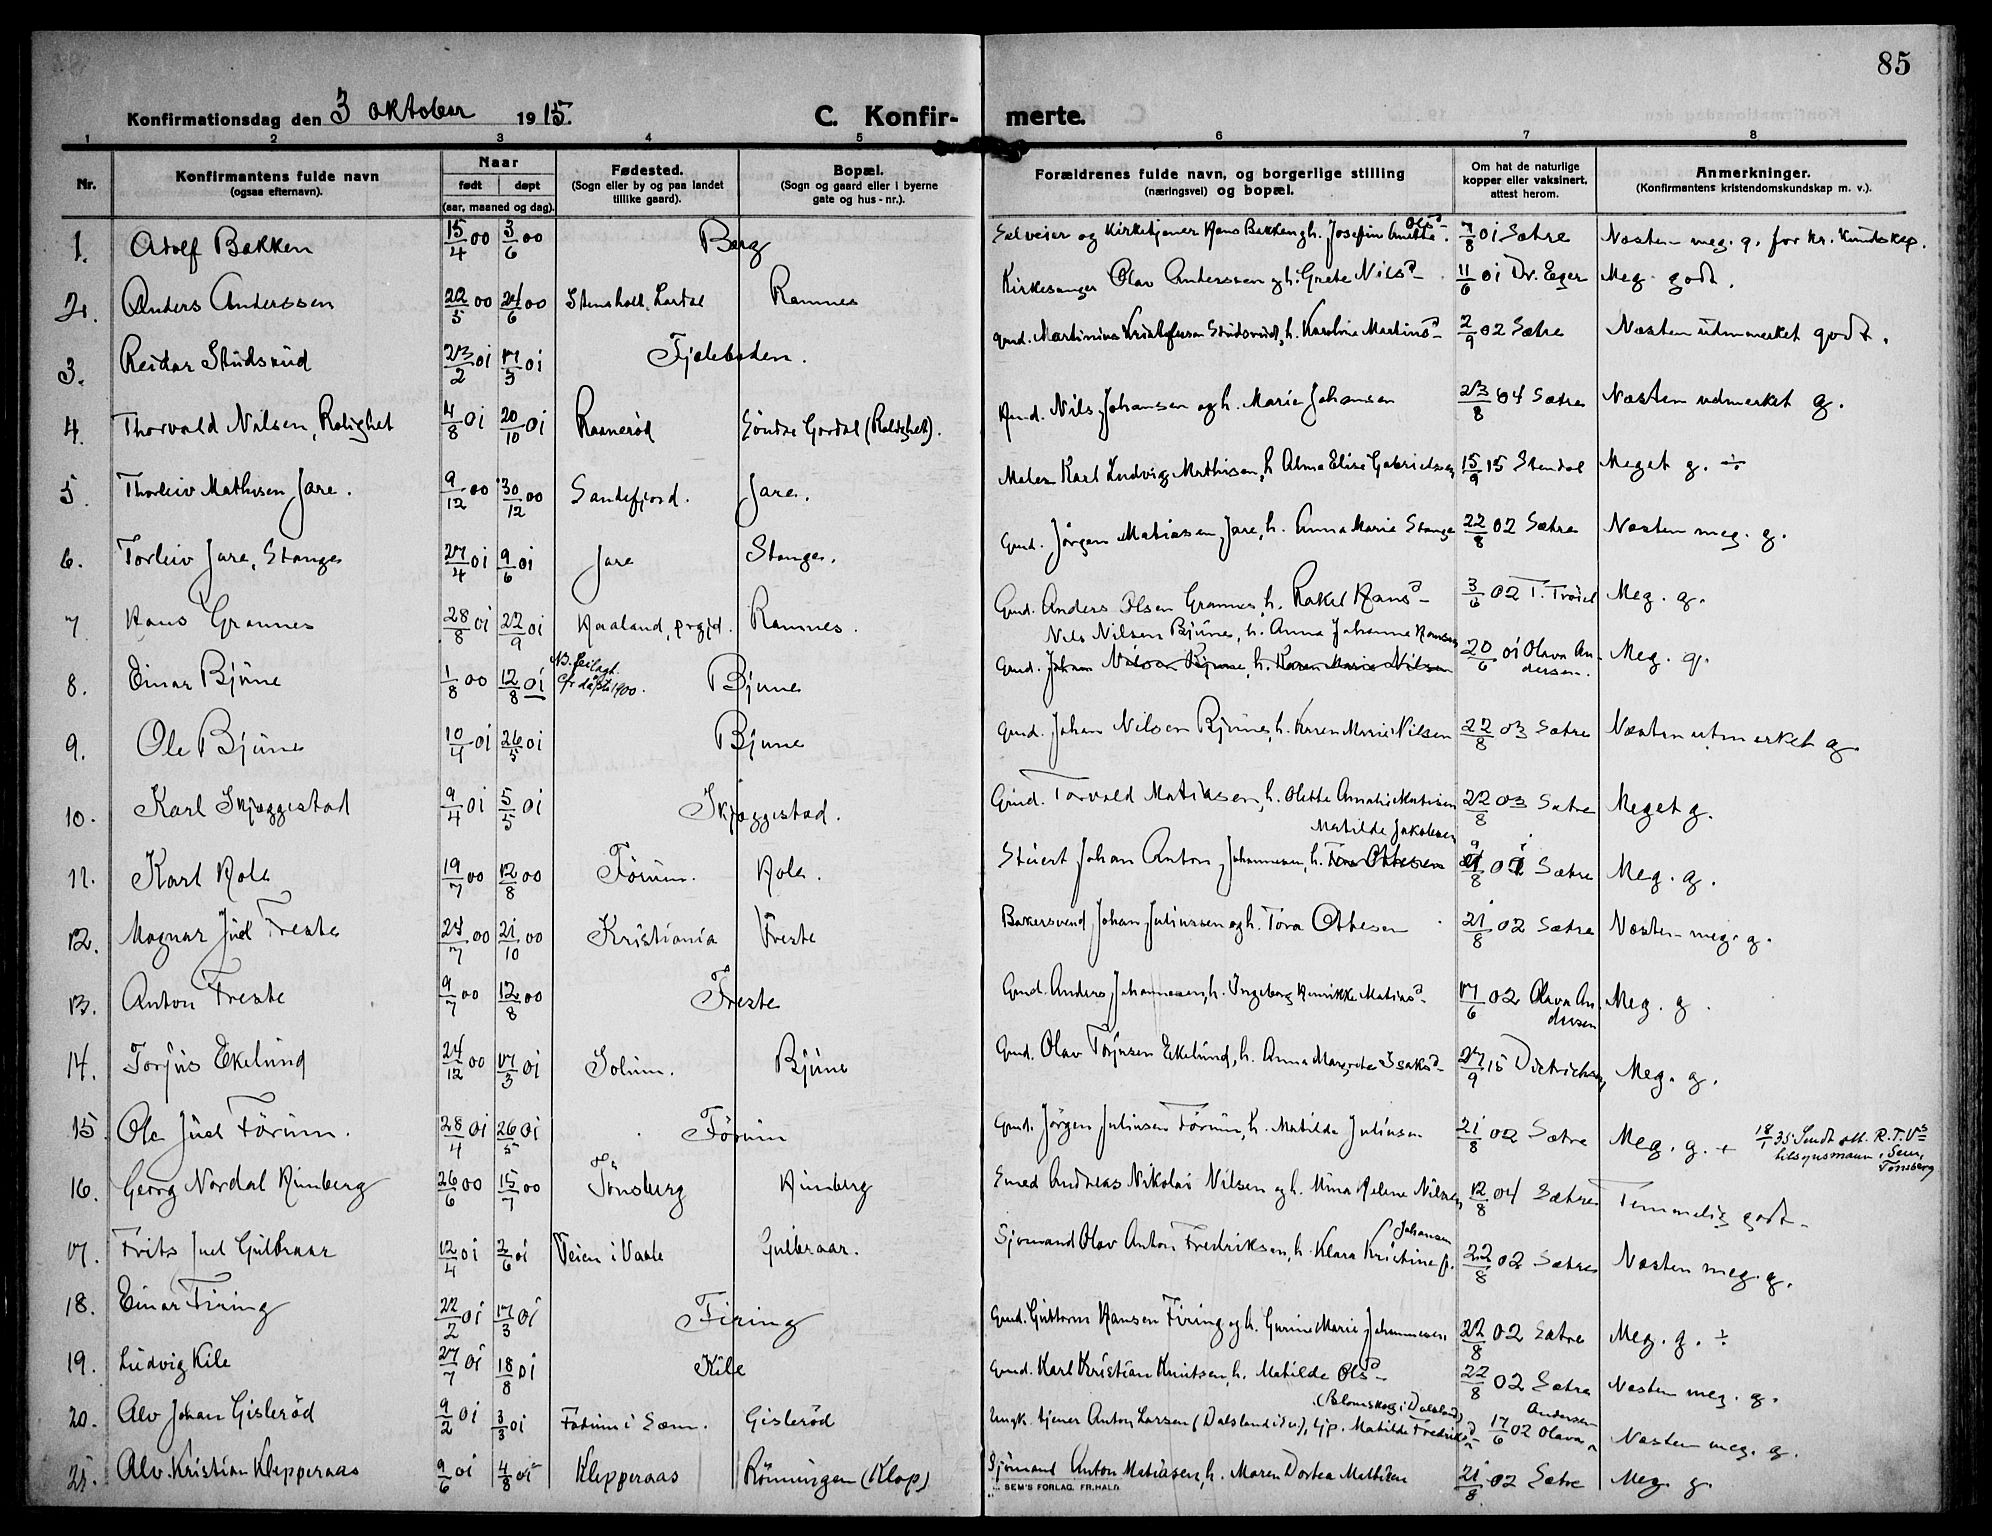 85
Konfirmationsdag den 3 oktober 1915.
C. Konfir- merte.
1 2 3 4 5 6 7 8
Nr.
Konfirmantens fulde navn
(ogsaa efternavn).
Naar
født døpt
(aar, maaned og dag).
Fødested.
(Sogn eller by og paa landet
tillike gaard).
Bopæl.
(Sogn og gaard eller i byerne
gate og hus-nr.).
Forældrenes fulde navn, og borgerlige stilling
(næringsvei) og bopæl.
Om hat de naturlige
kopper eller vaksinert,
attest herom.
Anmerkninger.
(Konfirmantens kristendomskundskap m. v.).
1. Adolf Bakken 15/4 00 3/6 00 Berg Selveier og Kirketjener Hans Bakken og h. Josefin Anette Olsd 7/8 01 Sætre Næsten meg. g. for kr. kundskap.
2. Anders Anderssen 22/5 00 24/6 00 Stensholt, Lardal Ramnes Kirkesanger Olav Anderssen og h. Grete Nilsd 11/6 01 Dr. Eger Meg. godt.
3. Reidar Studsrud 23/2 01 17/3 01 Fjelebaden. Gmd. Martinius Kristofersen Studsrud, h. Karoline Martinsd 2/9 02 Sætre Næsten utmerket godt.
4. Thorvald Nilsen, Rolighet 4/8 01 20/10 01 Ramnerød Søndre Gardal (Rolighet). Gmd. Nils Johansen og h. Marie Johansen 23/8 04 Sætre Næsten udmerket g.
5. Thorleiv Mathisen Jare. 9/12 00 30/12 00 Sandefjord. Jare. Maler Karl Ludvig Mathisen, h. Alma Elise Gabrielsen 15/9 15 Stendal Meget g. ÷
6. Torleiv Jare, Stange 27/4 01 9/6 01 Jare Stange. Gmd. Jørgen Matiassen Jare, h. Anna Marie Stange 22/8 02 Sætre Næsten meg. g.
7 Hans Grannes 28/8 01 22/9 01 Haaland, prgjd. Ramnes. Gmd. Anders Olsen Grannes, h. Rakel Hansd 3/6 02 T. Meg. g.
Nils Nilsen Bjune, h. Anna Johanne Hansen
8. Einar Bjune 1/8 00 12/8 01 NB. feilagt. Cfr døpte 1900. Bjune Gmd. Johan Nilsen Bjune, h. Karen Marie Nilsen 20/6 01 Olava Andersen. Meg. g.
9. Ole Bjune 10/4 01 26/5 01 Bjune Gmd. Johan Nilsen Bjune, h. Karen Marie Nilsen 22/8 03 Sætre Næsten utmerket g.
10. Karl Skjæggestad 9/4 01 5/5 01 Skjæggestad. Gmd. Torvald Matiksen, h. Olette Matisen 22/8 03 Sætre Meget g.
Matilde Jakobsen
11. Karl Hole 19/7 00 12/8 00 Førum. Hole. Stuert Johan Anton Johannesen, h. Tora Ottesen 8 01 Sætre Meg. g.
12. Magnar Juel Freste 24/7 00 21/10 00 Kristiania Freste Bakersvend Johan Juliussen og h. Tora Ottesen 21/8 02 Sætre Næsten meg. g.
13. Anton Freste 9/7 00 12/8 00 Freste Gmd. Anders Johannesen, h. Ingeborg Henrikke Matiasd 17/6 02 Olava Andersen Meg. g.
14. Torjus Ekelund 24/12 00 17/3 01 Solum. Bjune Gmd. Olav Torjusen Ekelund, h. Anna Margrete Isaksd 27/9 15 Dietrichsen Meg. g.
15 Ole Juel Førum. 28/4 01 26/5 01 Førum Gmd. Jørgen Juliusen Førum, h. Matilde Juliusen 21/8 02 Sætre Meg. g. + 18/1 35 Sendt att. R.T.Vs
tilsynsmann i Sem,
Tønsberg
16. Georg Nordal Rimberg 26/6 00 15/7 00 Tønsberg Rimberg Smed Andreas Nikolai Nilsen og h. Mina Helene Nilsen 12/8 04 Sætre Temmelig godt
17. Frits Juel Gulbraar 12/4 01 2/6 01 Veien i Vaale Gulbraar. Sjømand Olav Anton Fredriksen, h. Klara Kristine f. Johansen 22/8 02 Sætre Næsten meg. g.
18. Einar Firing 22/2 01 17/3 01 Firing Gmd. Guttorm Hansen Firing og h. Gurine Marie Johannesen 22/8 02 Sætre Meg. g. ÷
19. Ludvig Kile 27/7 01 18/8 01 Kile Gmd. Karl Kristian Knutsen, h. Matilde Olsd 22/8 02 Sætre Næsten meg. g.
20. Alv Johan Gislerød 9/2 01 3/3 01 i Sæm. Gislerød Ungk. tjener Anton Larsen (Dalsland i Sv.), (Blomskog i Dalsland) pp. Matilde Fredriksd 17/6 02 Olava Andersen Næsten meg. g.
21. Alv Kristian Klepperaas 9/6 01 4/8 01 Klepperaas Rønningen (Klop) Sjømand Anton Matiasen, h. Maren Dortea Mathisen 21/8 02 Sætre Meg. g.
SEM'S FORLAG, FR.HALD.